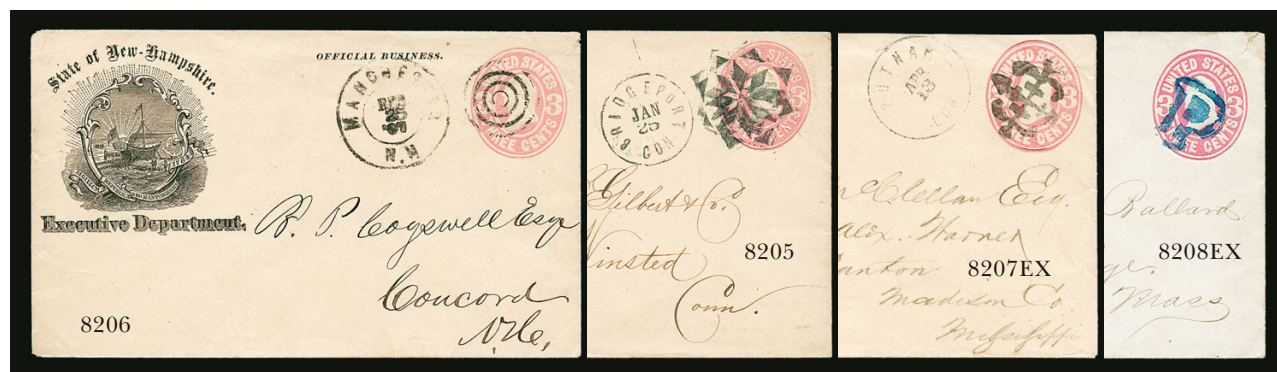 State of New-Hampshire.
OFFICIAL BUSINESS.
MANCHESTER
N.H
UNITED STATES
3
THREE CENTS
Executive Department.
P. Cogswell Esqr
Concord
8206
BRIDGEPORT
JAN
25
CON
UNITED STATES
3
THREE CENTS
Gilbert & Co.
Winsted
Conn.
8205
PUTNAM
APR
13
UNITED STATES
3
THREE CENTS
McClellan Esq.
Alex. Warner
Canton
Madison Co
Mississippi
8207EX
UNITED STATES
3 3
THREE CENTS
Ballard
ge.
Mass
8208EX